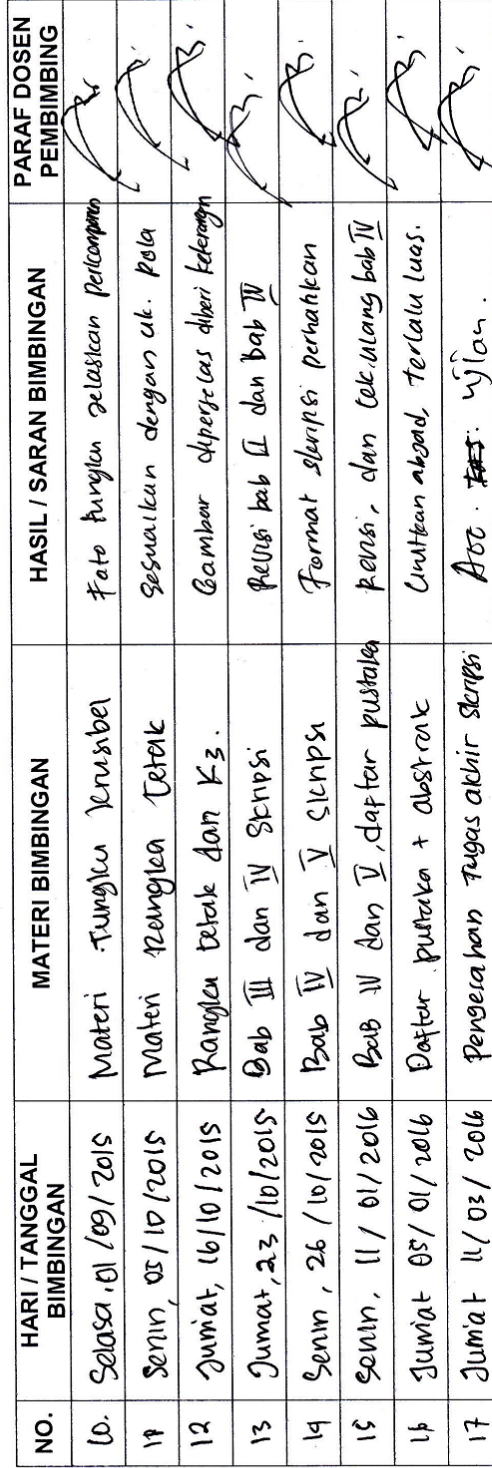 NO. HARI / TANGGAL BIMBINGAN MATERI BIMBINGAN HASIL / SARAN BIMBINGAN PARAF DOSEN PEMBIMBING
10. Selasa, 01/09/2015 Materi Tungku krusibel Foto tungku jelaskan perkomponen
11 Senin, 05/10/2015 Materi Rangka Cetak Sesuaikan dengan uk. pola
12 Jumat, 16/10/2015 Rangka cetak dan K3. Gambar diperjelas diberi keterangan
13 Jumat, 23/10/2015 Bab III dan IV Skripsi Revisi bab II dan bab IV
14 Senin, 26/10/2015 Bab IV dan V Skripsi Format skripsi perhatikan
15 Senin, 11/01/2016 Bab IV dan V, daftar pustaka Revisi, dan cek ulang bab IV
16 Jumiat 05/01/2016 Daftar pustaka + abstrak terlalu luas.
17 Jumiat 11/03/2016 Pengesahan Tugas akhir skripsi Acc. ujian.